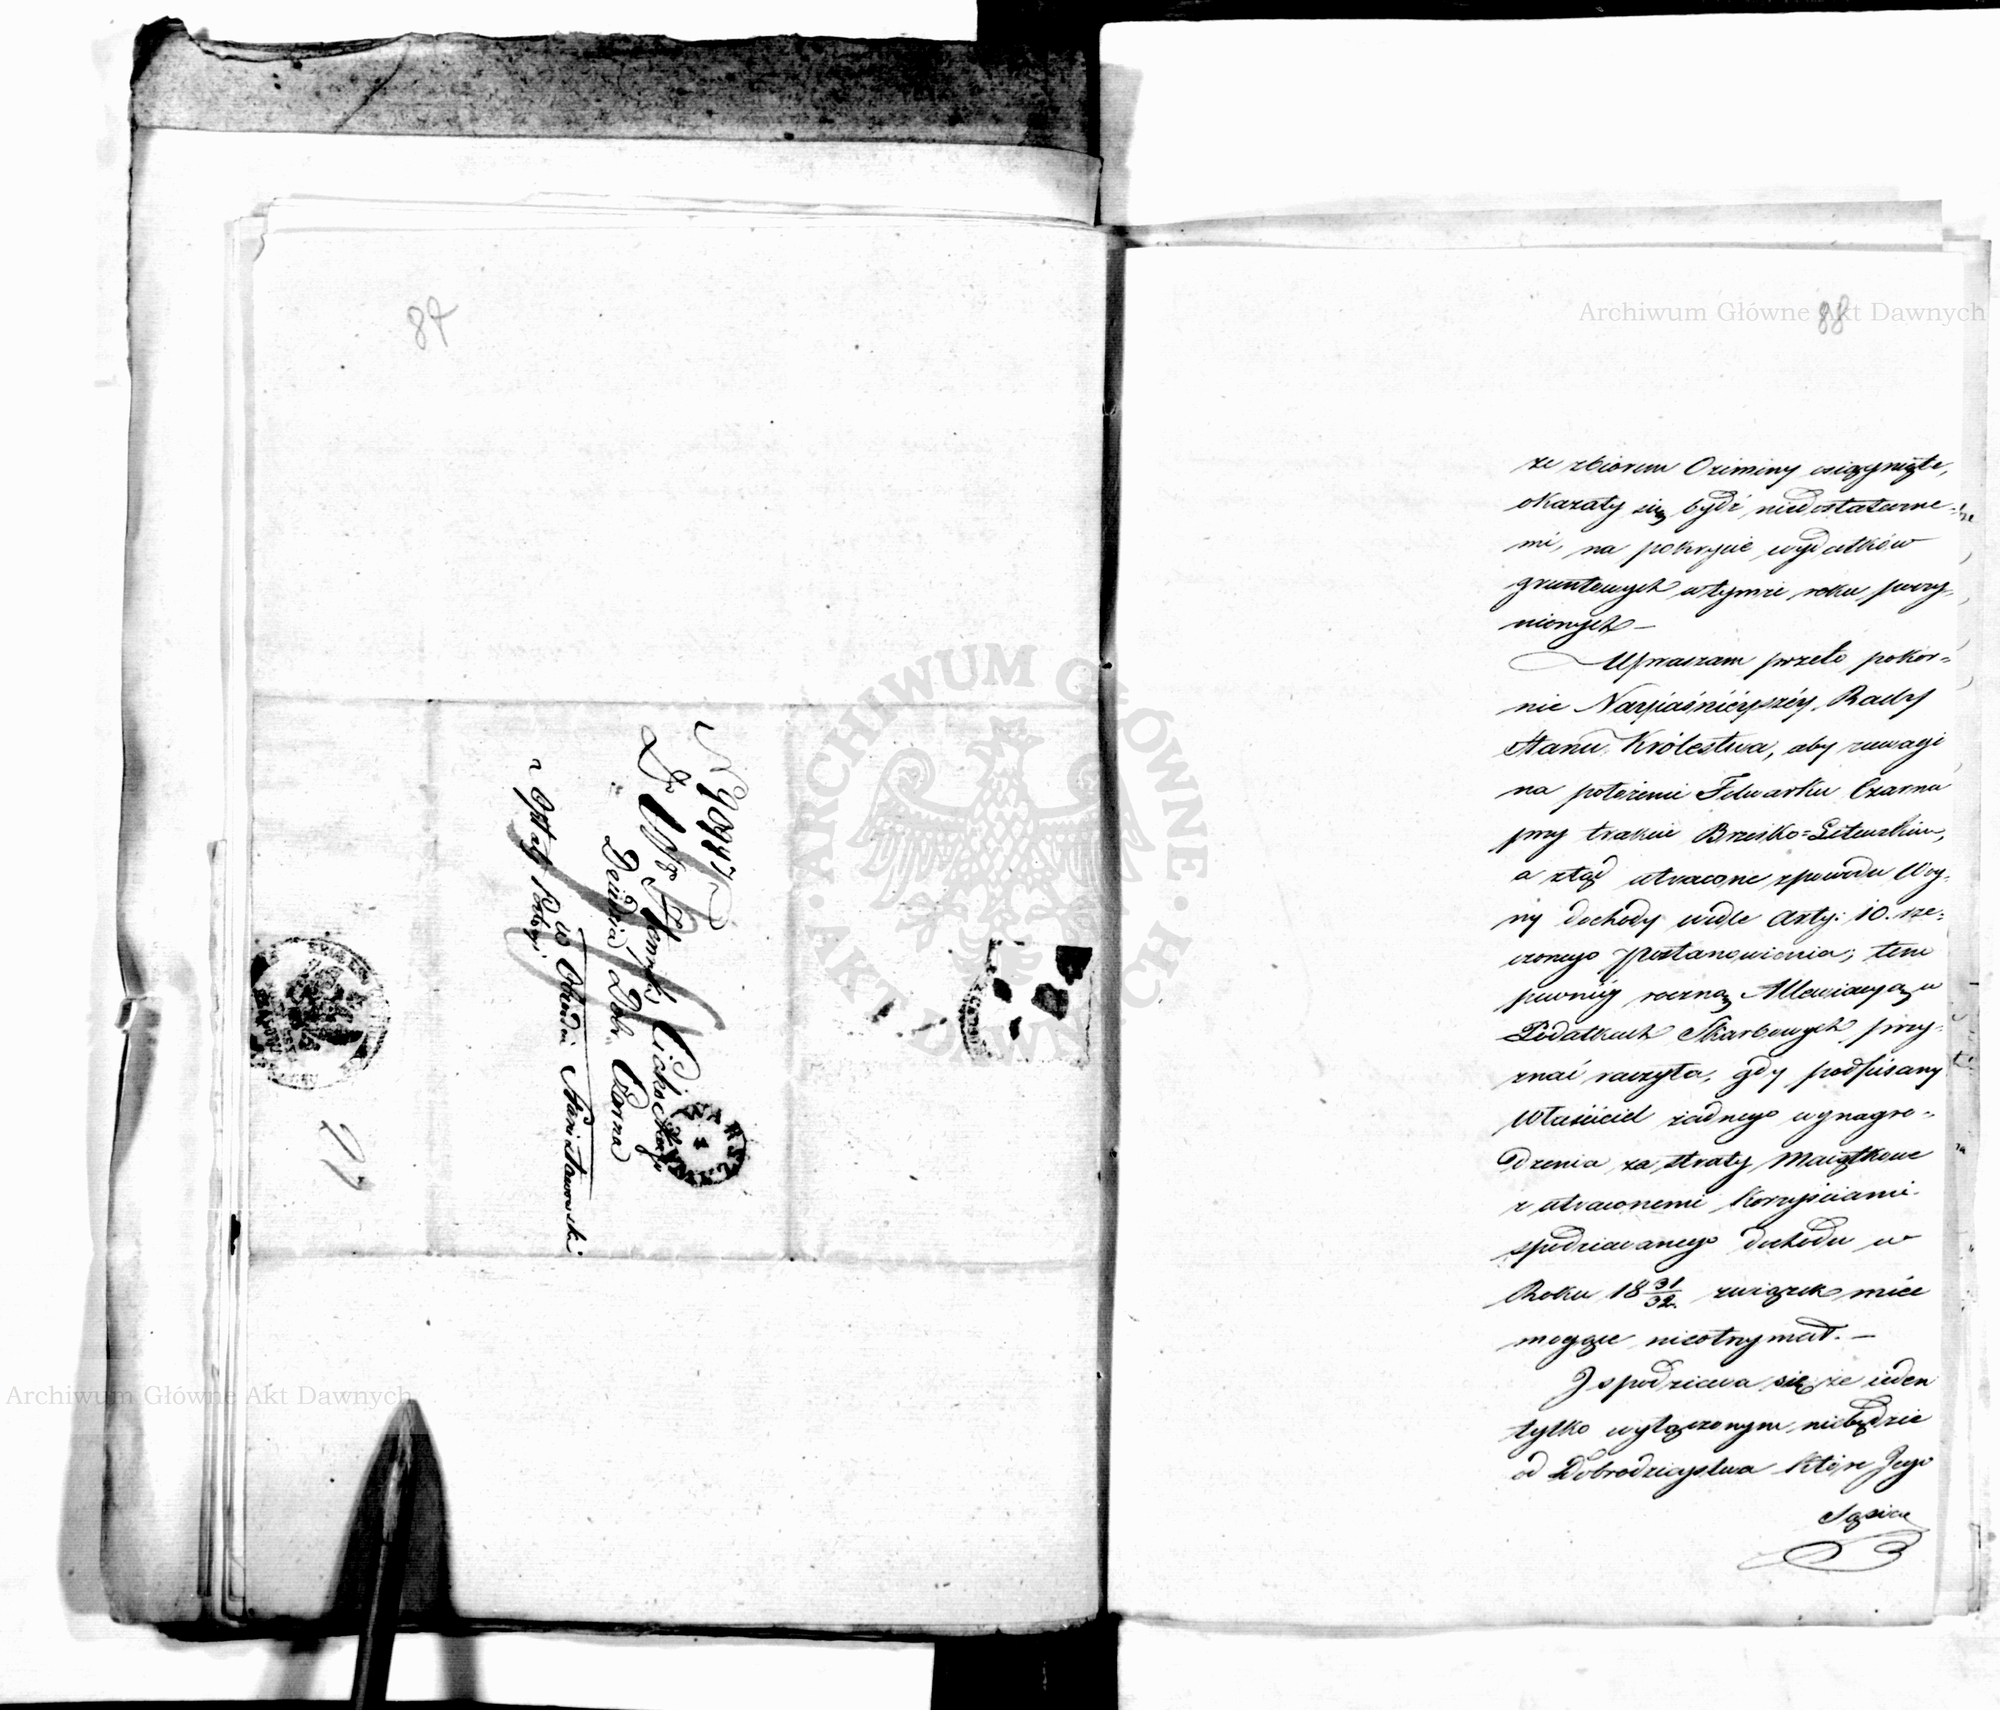 87
N 90947
Do W Henryk Cichockiego
Dziedzica Dobr Czarna
w Obwodzie Stanisławowski
88
ze zbiorem Oziminy osiągnięte,
okazały się bydź niedostateczne-
mi, na pokrycie wydatków
gruntowych w tymże roku poczy-
nionych –
Upraszam przeto pokor=
nie Nayiaśnieyszéy Rady
Stanu Królestwa, aby z uwagi
na położenie Folwarku Czarna
przy trakcie Brzesko=Litewskim,
a ztąd utracone z powodu Woy-
ny dochody wedle Arty: 10. rze-
czonego Postanowienia, tem
pewniéy roczną Allewiacyą w
Podatkach Skarbowych przy-
znać raczyła, gdy podpisany
Właściciel żadnego wynagro-
dzenia za straty Maiątkowe
z utraconemi korzyściami
spodziewanego dochodu w
Roku 18 31/32. związek mieć
mogące nieotrzymał. –
I spodziewa się że ieden
tylko wyłączonym niebędzie
od Dobrodzieystwa które Jego
Archiwum Główne Akt Dawnych
ARCHIWUM GŁÓWNE AKT DAWNYCH
Archiwum Główne Akt Dawnych